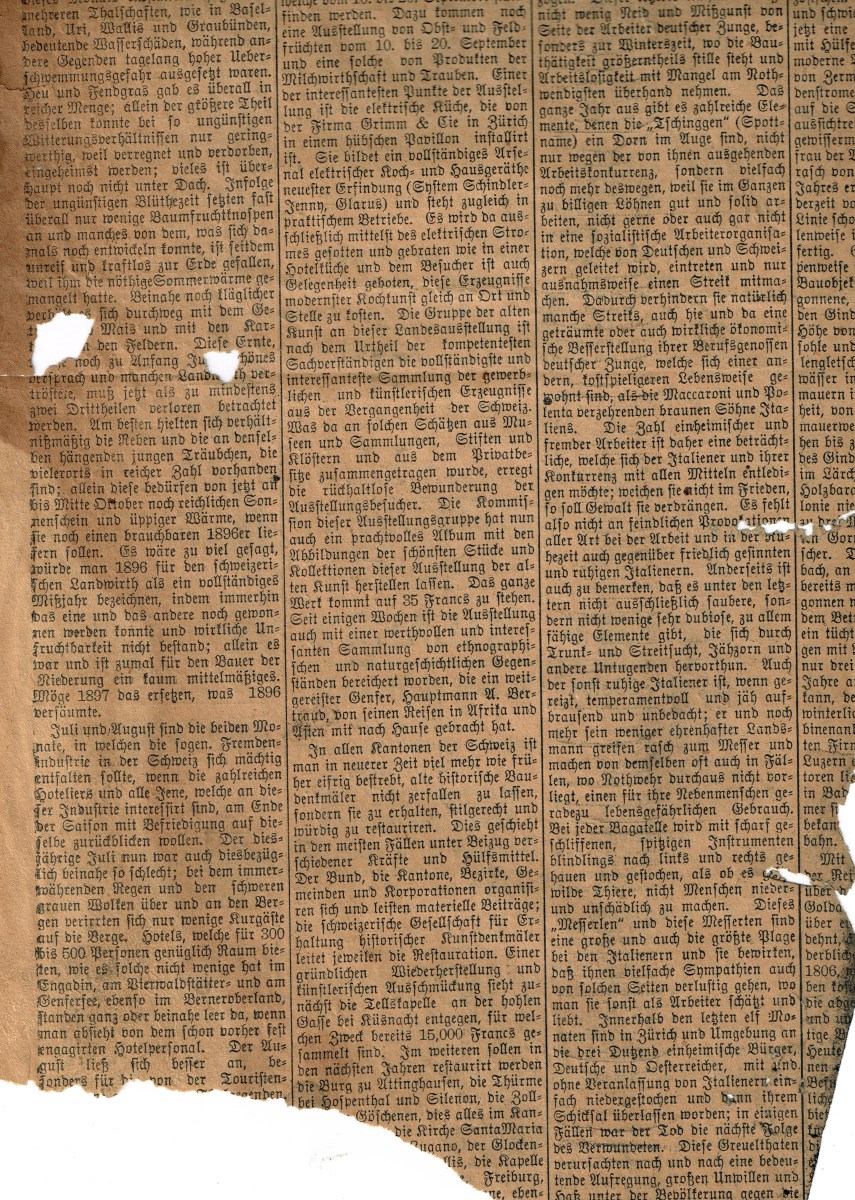 mehreren Thalschaften, wie in Basel-
land, Uri, Wallis und Graubünden,
bedeutende Wasserschäden, während an-
dere Gegenden tagelang hoher Ueber-
schwemmungsgefahr ausgesetzt waren.
Heu und Fendgras gab es überall in
reicher Menge; allein der größere Theil
desselben konnte bei so ungünstigen
Witterungsverhältnissen nur gering-
werthig, weil verregnet und verdorben,
eingeheimst werden; vieles ist über-
haupt noch nicht unter Dach. Infolge
der ungünstigen Blüthezeit setzten fast
überall nur wenige Baumfruchtknospen
an und manches von dem, was sich da-
mals noch entwickeln konnte, ist seitdem
unreif und kraftlos zur Erde gefallen,
weil ihm die nöthige Sommerwärme ge-
mangelt hatte. Beinahe noch kläglicher
sich durchweg mit dem Ge-
Mais und mit den Kar-
den Feldern. Diese Ernte,
noch zu Anfang
versprach und manchen ver-
tröstete, muß jetzt als zu mindestens
zwei Drittheilen verloren betrachtet
werden. Am besten hielten sich verhält-
nißmäßig die Reben und die an densel-
ben hängenden jungen Träubchen, die
vielerorts in reicher Zahl vorhanden
sind; allein diese bedürfen von jetzt an
bis Mitte Oktober noch reichlichen Son-
nenschein und üppiger Wärme, wenn
sie noch einen brauchbaren 1896er lie-
fern sollen. Es wäre zu viel gesagt,
würde man 1896 für den schweizeri-
schen Landwirth als ein vollständiges
Mißjahr bezeichnen, indem immerhin
das eine und das andere noch gewon-
nen werden konnte und wirkliche Un-
fruchtbarkeit nicht bestand; allein es
war und ist zumal für den Bauer der
Niederung ein kaum mittelmäßiges.
Möge 1897 das ersetzen, was 1896
versäumte.
Juli und August sind die beiden Mo-
nate, in welchen die sogen. Fremden-
industrie in der Schweiz sich mächtig
entfalten sollte, wenn die zahlreichen
Hoteliers und alle Jene, welche an die-
ser Industrie interessirt sind, am Ende
der Saison mit Befriedigung auf die-
selbe zurückblicken wollen. Der dies-
jährige Juli nun war auch diesbezüg-
lich beinahe so schlecht; bei dem immer-
währenden Regen und den schweren
grauen Wolken über und an den Ber-
gen verirrten sich nur wenige Kurgäste
auf die Berge. Hotels, welche für 300
bis 500 Personen genüglich Raum bie-
ten, wie es solche nicht wenige hat im
Engadin, am Vierwaldstätter- und am
Genfersee, ebenso im Berneroberland,
standen ganz oder beinahe leer da, wenn
man absieht von dem schon vorher fest
engagirten Hotelpersonal. Der Au-
gust ließ sich besser an, be-
sonders für die von der Touristen-
finden werden. Dazu kommen noch
eine Ausstellung von Obst- und Feld-
früchten vom 10. bis 20. September
und eine solche von Produkten der
Milchwirthschaft und Trauben. Einer
der interessantesten Punkte der Ausstel-
lung ist die elektrische Küche, die von
der Firma Grimm & Cie in Zürich
in einem hübschen Pavillon installirt
ist. Sie bildet ein vollständiges Arse-
nal elektrischer Koch- und Hausgeräthe
neuester Erfindung (System Schindler-
Jenny, Glarus) und steht zugleich in
praktischem Betriebe. Es wird da aus-
schließlich mittelst des elektrischen Stro-
mes gesotten und gebraten wie in einer
Hotelküche und dem Besucher ist auch
Gelegenheit geboten, diese Erzeugnisse
modernster Kochkunst gleich an Ort und
Stelle zu kosten. Die Gruppe der alten
Kunst an dieser Landesausstellung ist
nach dem Urtheil der kompetentesten
Sachverständigen die vollständigste und
interessanteste Sammlung der gewerb-
lichen und künstlerischen Erzeugnisse
aus der Vergangenheit der Schweiz.
Was da an solchen Schätzen aus Mu-
seen und Sammlungen, Stiften und
Klöstern und aus dem Privatbe-
sitze zusammengetragen wurde, erregt
die rückhaltlose Bewunderung der
Ausstellungsbesucher. Die Kommis-
sion dieser Ausstellungsgruppe hat nun
auch ein prachtvolles Album mit den
Abbildungen der schönsten Stücke und
Kollektionen dieser Ausstellung der al-
ten Kunst herstellen lassen. Das ganze
Werk kommt auf 35 Francs zu stehen.
Seit einigen Wochen ist die Ausstellung
auch mit einer werthvollen und interes-
santen Sammlung von ethnographi-
schen und naturgeschichtlichen Gegen-
ständen bereichert worden, die ein weit-
gereister Genfer, Hauptmann A. Ber-
traud, von seinen Reisen in Afrika und
Asien mit nach Hause gebracht hat.
In allen Kantonen der Schweiz ist
man in neuerer Zeit viel mehr wie frü-
her eifrig bestrebt, alte historische Bau-
denkmäler nicht zerfallen zu lassen,
sondern sie zu erhalten, stilgerecht und
würdig zu restauriren. Dies geschieht
in den meisten Fällen unter Beizug ver-
schiedener Kräfte und Hülfsmittel.
Der Bund, die Kantone, Bezirke, Ge-
meinden und Korporationen organisi-
ren sich und leisten materielle Beiträge;
die schweizerische Gesellschaft für Er-
haltung historischer Kunstdenkmäler
leitet jeweilen die Restauration. Einer
gründlichen Wiederherstellung und
künstlerischen Ausschmückung sieht zu-
nächst die Tellskapelle an der hohlen
Gasse bei Küsnacht entgegen, für wel-
chen Zweck bereits 15,000 Francs ge-
sammelt sind. Im weiteren sollen in
den nächsten Jahren restaurirt werden
die Burg zu Attinghausen, die Thürme
bei Hospenthal und Silenon, die Zoll-
Göschenen, dies alles im Kan-
die Kirche Santa Maria
Lugano, der Glocken-
die Kapelle
Freiburg,
eben-
nicht wenig Neid und Mißgunst von
Seite der Arbeiter deutscher Zunge, be-
sonders zur Winterszeit, wo die Bau-
thätigkeit größerntheils stille steht und
Arbeitslosigkeit mit Mangel am Noth-
wendigsten überhand nehmen. Das
ganze Jahr aus gibt es zahlreiche Ele-
mente, denen die „Tschinggen“ (Spott-
name) ein Dorn im Auge sind, nicht
nur wegen der von ihnen ausgehenden
Arbeitskonkurrenz, sondern vielfach
noch mehr deswegen, weil sie im Ganzen
zu billigen Löhnen gut und solid ar-
beiten, nicht gerne oder auch gar nicht
in eine sozialistische Arbeiterorganisa-
tion, welche von Deutschen und Schwei-
zern geleitet wird, eintreten und nur
ausnahmsweise einen Streik mitma-
chen. Dadurch verhindern sie natürlich
manche Streiks, auch hie und da eine
geträumte oder auch wirkliche ökonomi-
sche Besserstellung ihrer Berufsgenossen
deutscher Zunge, welche sich einer an-
dern, kostspieligeren Lebensweise ge-
wohnt sind, als die Maccaroni und Po-
lenta verzehrenden braunen Söhne Ita-
liens. Die Zahl einheimischer und
fremder Arbeiter ist daher eine beträcht-
liche, welche sich der Italiener und ihrer
Konkurrenz mit allen Mitteln entledi-
gen möchte; weichen sie nicht im Frieden,
so soll Gewalt sie verdrängen. Es fehlt
also nicht an feindlichen Provokationen
aller Art bei der Arbeit und in der Ru-
hezeit auch gegenüber friedlich gesinnten
und ruhigen Italienern. Anderseits ist
auch zu bemerken, daß es unter den letz-
tern nicht ausschließlich saubere, son-
dern nicht wenige sehr dubiose, zu allem
fähige Elemente gibt, die sich durch
Trunk- und Streitsucht, Jähzorn und
andere Untugenden hervorthun. Auch
der sonst ruhige Italiener ist, wenn ge-
reizt, temperamentvoll und jäh auf-
brausend und unbedacht; er und noch
mehr sein weniger ehrenhafter Lands-
mann greifen rasch zum Messer und
machen von demselben oft auch in Fäl-
len, wo Nothwehr durchaus nicht vor-
liegt, einen für ihre Nebenmenschen ge-
radezu lebensgefährlichen Gebrauch.
Bei jeder Bagatelle wird mit scharf ge-
schliffenen, spitzigen Instrumenten
blindlings nach links und rechts ge-
hauen und gestochen, als ob es
wilde Thiere, nicht Menschen nieder-
und unschädlich zu machen. Dieses
„Messerlen“ und diese Messerten sind
eine große und auch die größte Plage
bei den Italienern und sie bewirken,
daß ihnen vielfache Sympathien auch
von solchen Seiten verlustig gehen, wo
man sie sonst als Arbeiter schätzt und
liebt. Innerhalb den letzten elf Mo-
naten sind in Zürich und Umgebung an
die drei Dutzend einheimische Bürger,
Deutsche und Oesterreicher, mit und
ohne Veranlassung von Italienern ein-
fach niedergestochen und dann ihrem
Schicksal überlassen worden; in einigen
Fällen war der Tod die nächste Folge
des Verwundeten. Diese Greuelthaten
verursachten nach und nach eine bedeu-
tende Aufregung, großen Unwillen und
Haß unter der Bevölkerung gegen die
und schwi
jetzt eine
mit Hülfe
moderne
von Zerm
denstrome
auf die S
aussichtrei
gewisserm
frau der A
rasch von
Jahres er
derzeit vo
Linie scho
lenweise i
fertig.
penweise
Bauobjek
gonnene,
den Gind
Höhe von
sohle und
lengletsch
wässer in
mauern i
heit, von
mauerwe
hen bis z
des Gind
im Lärch
Holzbaro
lonie nic
an der M
von Gorn
scher. T
bach, an
bereits m
gonnen w
dem Bet
ein tücht
gen mit L
nur drei
Jahre a
kann, de
winterlic
binenanl
ten Firn
Luzern e
toren lie
in Bad
mer si
bekan
bahn.
Mit
der Rei
über
Golda
über e
dehnt,
derblich
1806,
ben kost
die abge
und un
tige B
Heute
nen
Befü